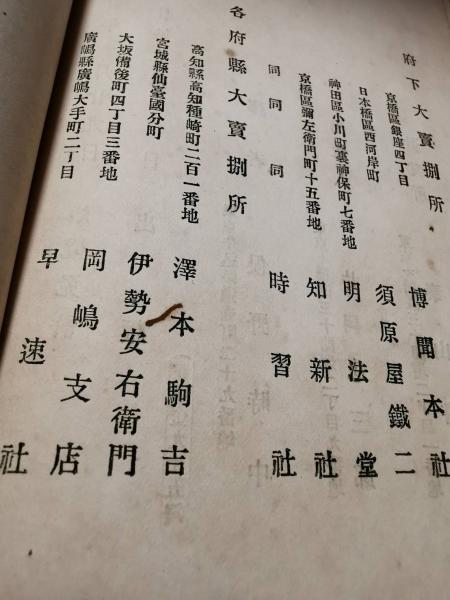 府下大賣捌所
京橋區銀座四丁目 博聞本社
日本橋區西河岸町 須原屋鐵二
神田區小川町裏神保町七番地 明法堂
京橋區彌左衛門町十五番地 知新社
同同同 時習社
各府縣大賣捌所
高知縣高知種崎町二百一番地 澤本駒吉
宮城縣仙臺國分町 伊勢安右衛門
大坂備後町四丁目三番地 岡嶋支店
廣嶋縣廣嶋大手町二丁目 早速社